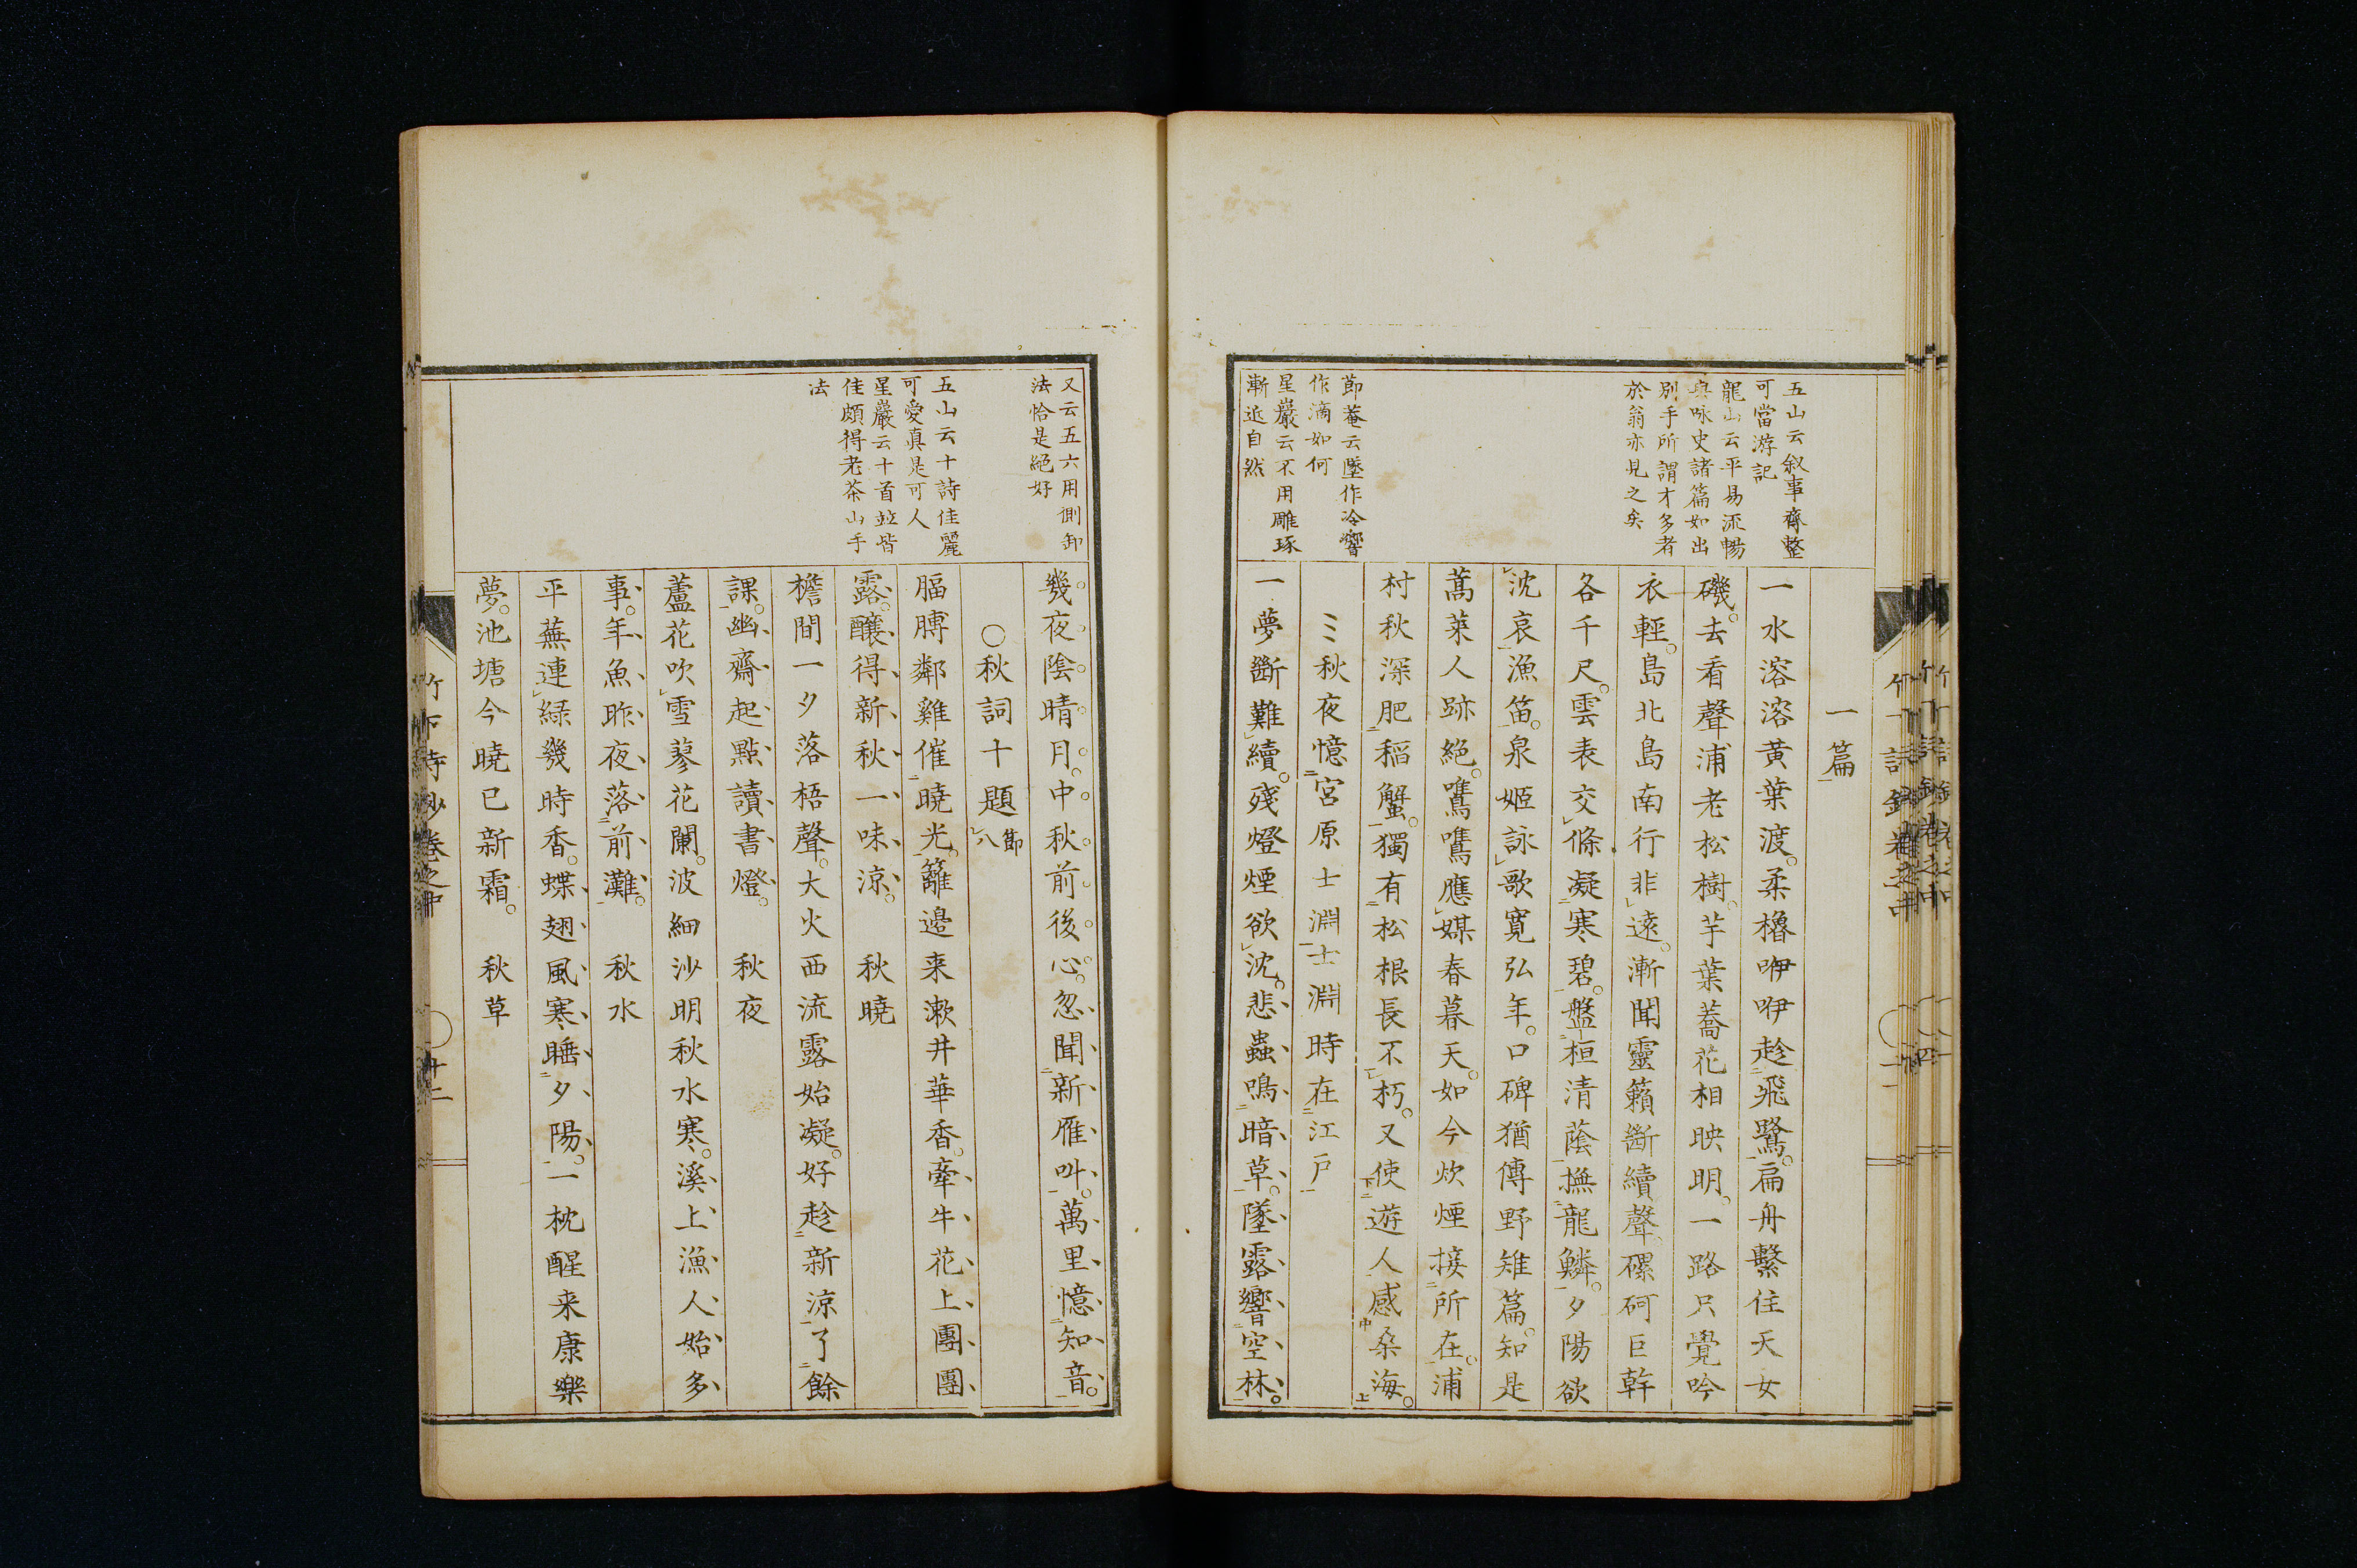 五山云叙事齊整
可當游記
龍山云平易流暢
與咏史諸篇如出
別手所謂才多者
於翁亦見之矣
節菴云墜作冷響
作滴如何
星巖云不用雕琢
漸近自然
一篇
一水溶溶黄葉渡柔櫓咿咿趁飛鷺扁舟繫住天女
磯去看聲浦老松樹芋葉蕎花相映明一路只覺吟
衣輕島北島南行非遠漸聞靈籟斷續聲磥砢巨幹
各千尺雲表交條凝寒碧盤桓清蔭撫龍鱗夕陽欲
沈哀漁笛泉姬詠歌寬弘年口碑猶傳野雉篇知是
蒿萊人跡絶噰噰應媒春暮天如今炊煙接所在浦
村秋深肥稲蟹獨有松根長不朽又使遊人感桑海
秋夜憶宮原士淵士淵時在江戸
一夢斷難續殘燈煙欲沈悲蟲鳴暗草墜露響空林
又云五六用側卸
法恰是絕好
五山云十詩佳麗
可愛真是可人
星巖云十首竝皆
佳頗得老茶山手
法
幾夜陰晴月中秋前後心忽聞新雁叫萬里憶知音
○秋詞十題節八
腷膊鄰雞催曉光籬邊来漱井華香牽牛花上團團
露釀得新秋一味涼 秋曉
檐間一夕落梧聲大火西流露始凝好趁新涼了餘
課幽齋起點讀書燈 秋夜
蘆花吹雪蓼花闌波細沙明秋水寒溪上漁人始多
事年魚昨夜落前灘 秋水
平蕪連緑幾時香蝶翅風寒睡夕陽一枕醒来康樂
夢池塘今曉已新霜 秋草
竹下詩鈔卷之中 十二